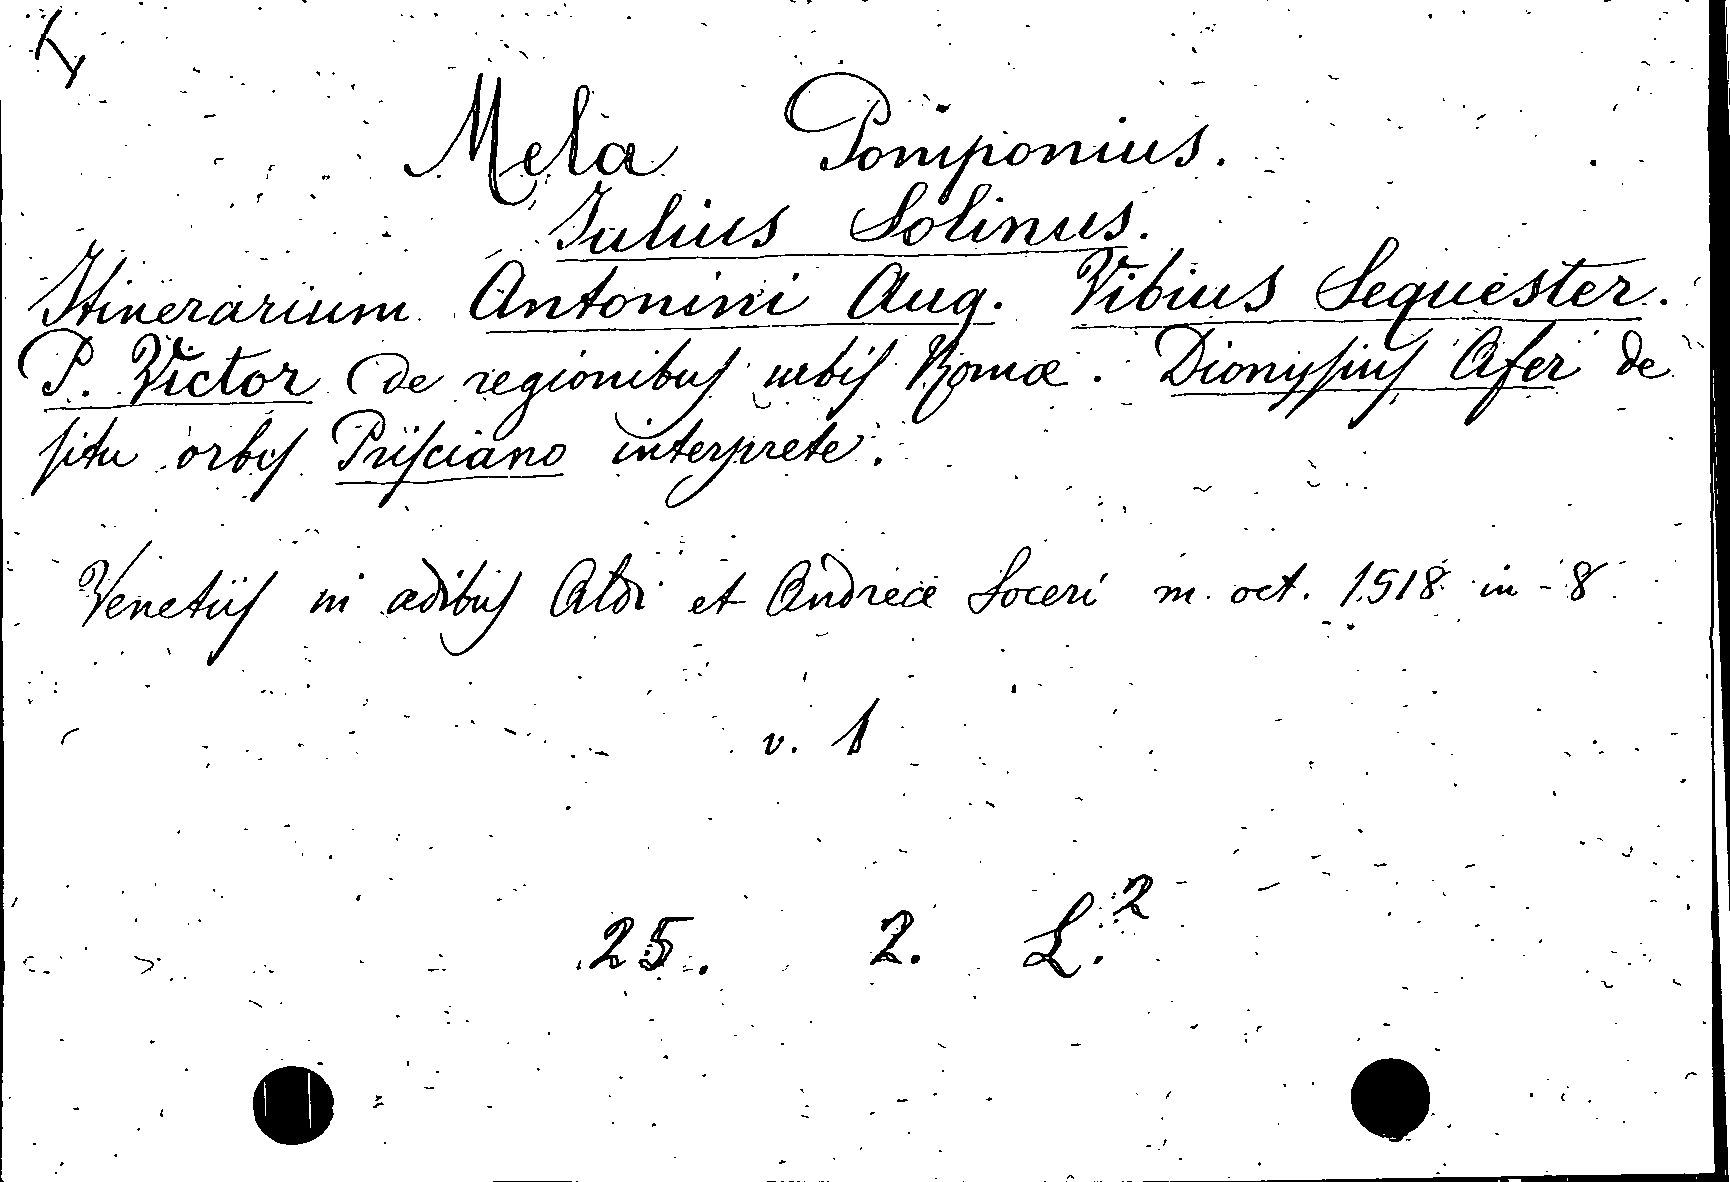 Mela Pomponius.
Julius Solinus.
Itinerarium Antonini Aug. Vibius Sequester.
P. Victor de regionibus urbis Romæ. Dionysius Afer de
situ orbis Prisciano interprete.
Venetiis in ædibus Aldi et Andreæ Soceri m. oct. 1518 in-8
v. 1
25. 2. L.²